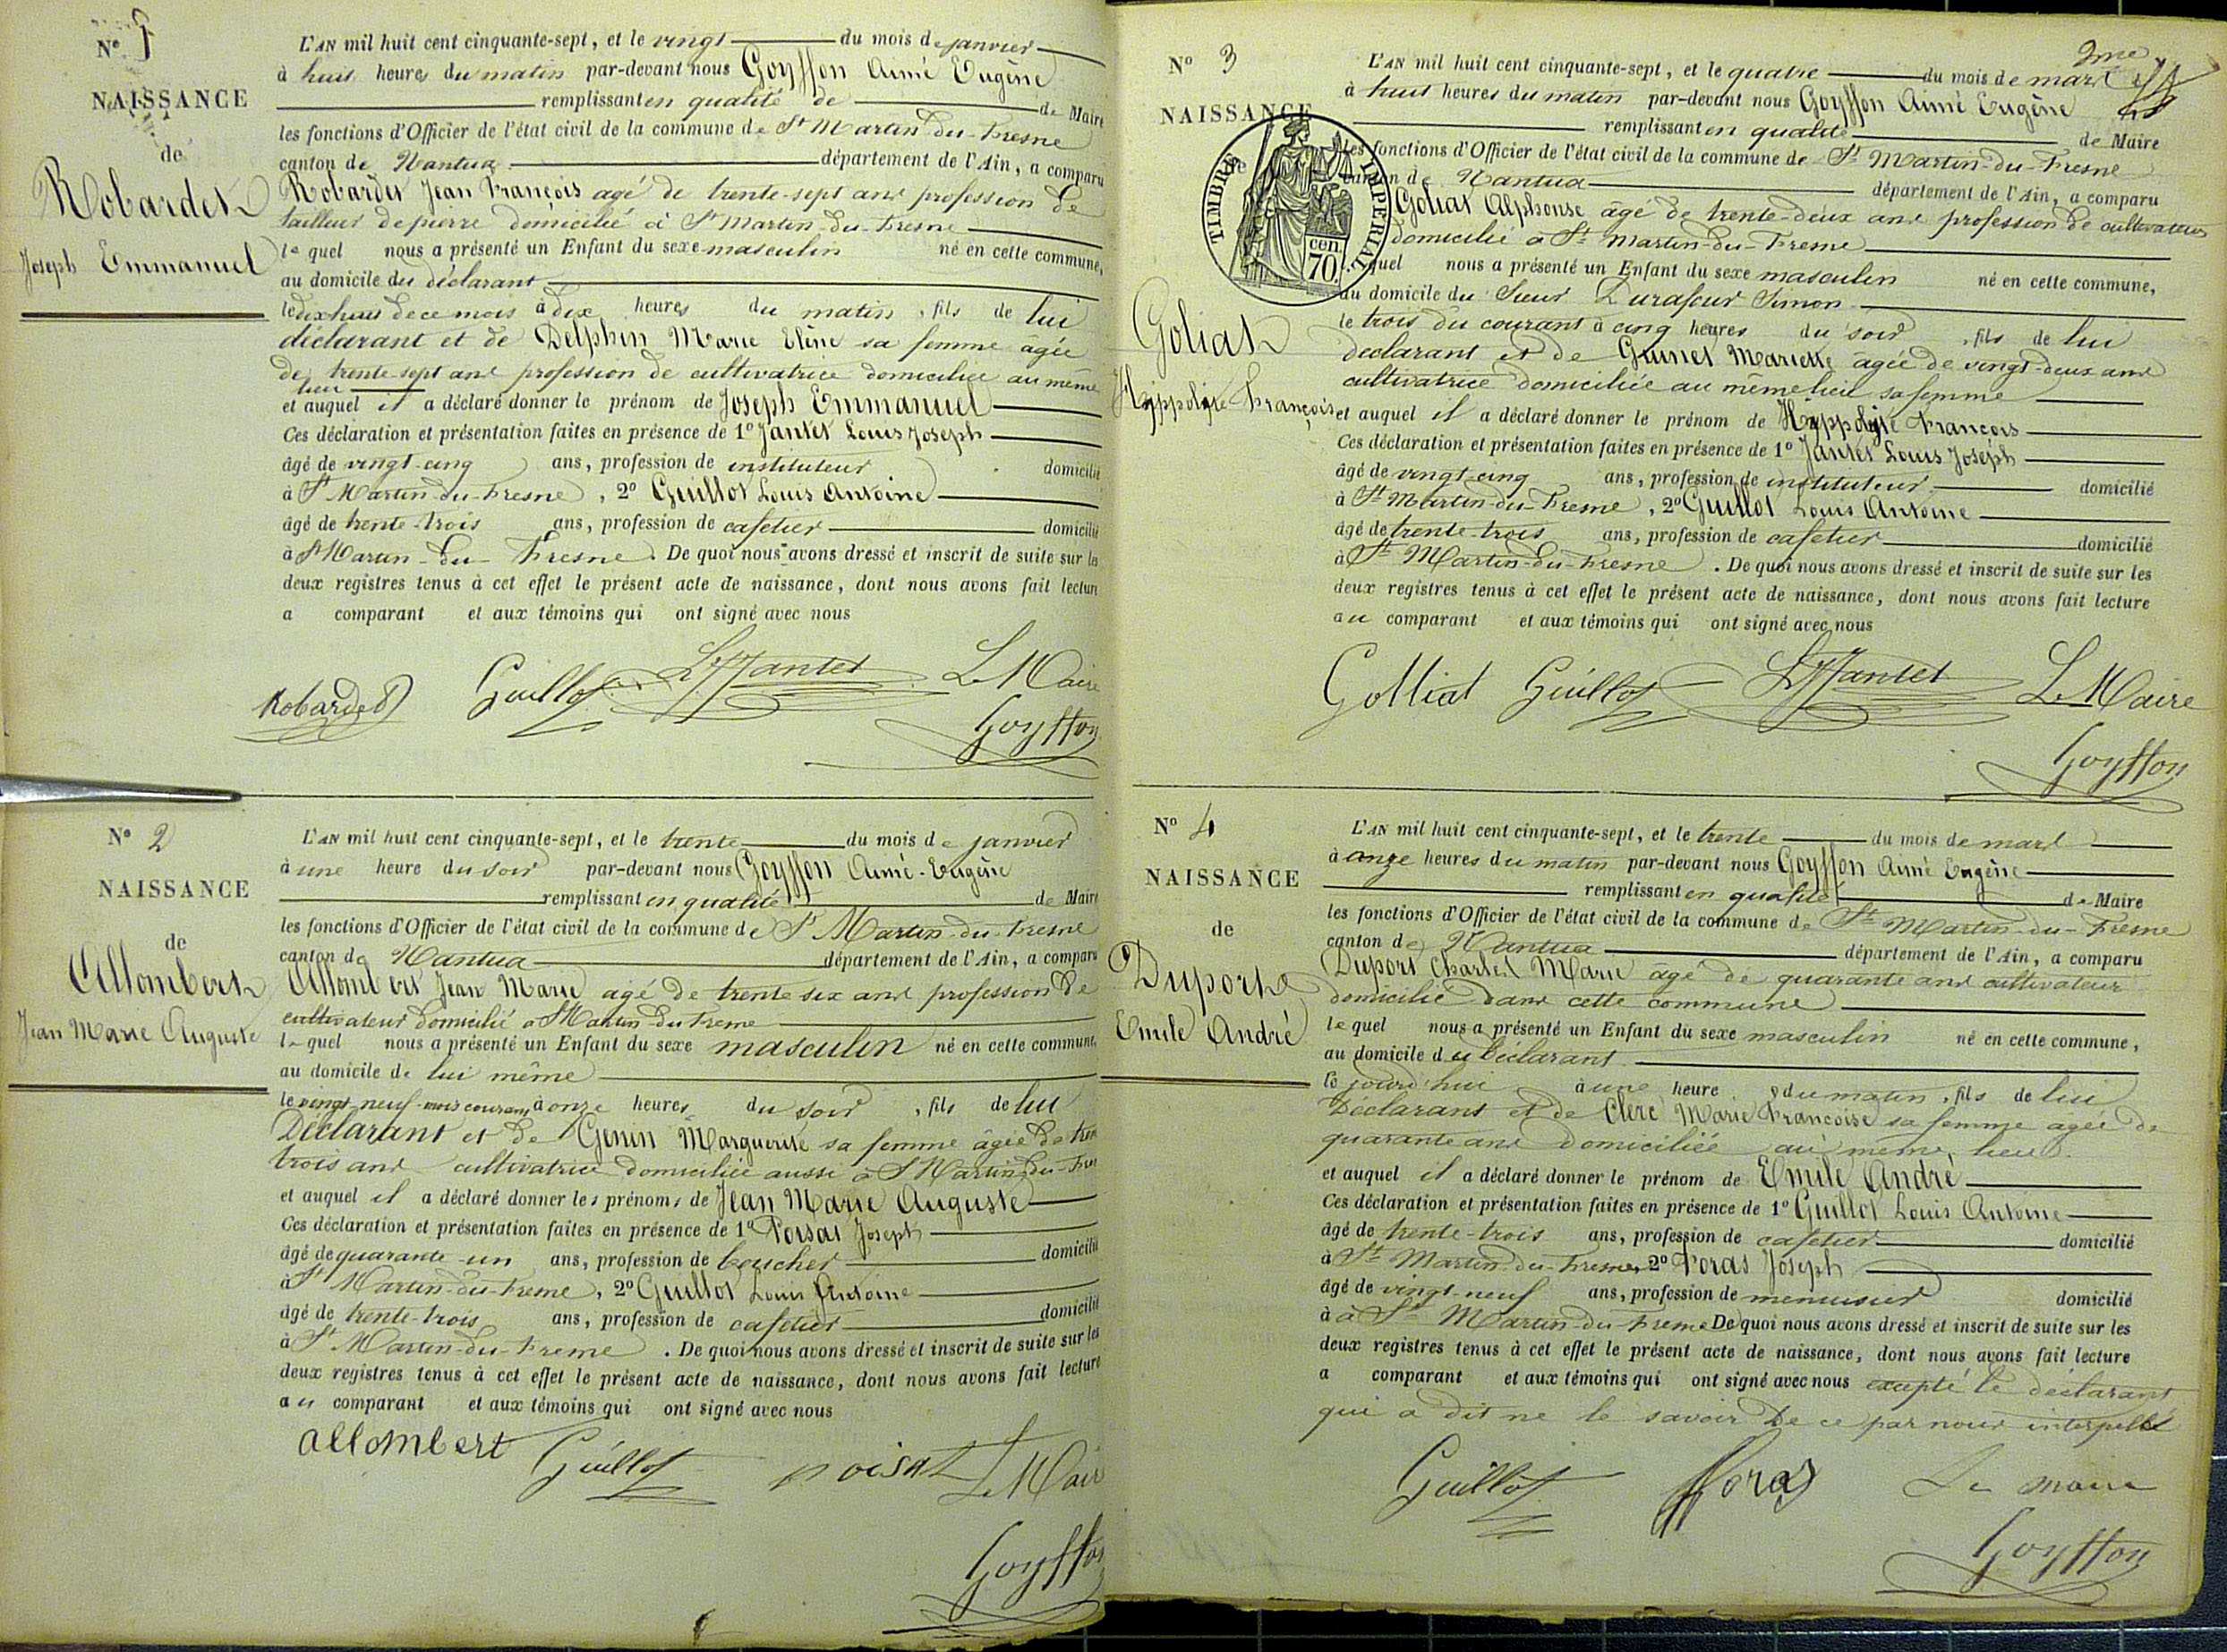 N° 1
NAISSANCE
de
Robardet
Joseph Emmanuel
L'AN mil huit cent cinquante-sept, et le vingt du mois de janvier
à huit heures du matin par-devant nous Goyffon Aimé Eugène
remplissant en qualité de de Maire
les fonctions d'Officier de l'état civil de la commune de St Martin-du-Fresne
canton de Nantua département de l'Ain, a comparu
Robardet Jean François agé de trente-sept ans profession de
tailleur de pierre domicilié à St Martin-du-Fresne
le quel nous a présenté un Enfant du sexe masculin né en cette commune,
au domicile du déclarant
le dix huit de ce mois à dix heures du matin, fils de lui
déclarant et de Delphin Marie Elène sa femme agée
de trente-sept ans profession de cultivatrice domiciliée au même
lieu
et auquel il a déclaré donner le prénom de Joseph Emmanuel
Ces déclaration et présentation faites en présence de 1° Jantet Louis Joseph
âgé de vingt-cinq ans, profession de instituteur domicilié
à St Martin-du-Fresne, 2° Guillot Louis Antoine
âgé de trente-trois ans, profession de cafetier domicilié
à St Martin-du-Fresne. De quoi nous avons dressé et inscrit de suite sur les
deux registres tenus à cet effet le présent acte de naissance, dont nous avons fait lecture
a comparant et aux témoins qui ont signé avec nous
Robardet Guillot LJ Jantet Le Maire
Goyffon
N° 2
NAISSANCE
de
Allombert
Jean Marie Auguste
L'AN mil huit cent cinquante-sept, et le trente du mois de janvier
à une heure du soir par-devant nous Goyffon Aimé-Eugène
remplissant en qualité de Maire
les fonctions d'Officier de l'état civil de la commune de St Martin-du-Fresne
canton de Nantua département de l'Ain, a comparu
Allombert Jean Marie agé de trente six ans profession de
cultivateur domicilié à St Martin du Fresne
le quel nous a présenté un Enfant du sexe masculin né en cette commune,
au domicile de lui même
le vingt-neuf mois courant à onze heures du soir, fils de lui
Déclarant et de Genin Marguerite sa femme âgée de trente
trois ans cultivatrice domiciliée aussi à St Martin-du-Fres
et auquel il a déclaré donner les prénoms de Jean Marie Auguste
Ces déclaration et présentation faites en présence de 1° Poisat Joseph
âgé de quarante-un ans, profession de boucher domicilié
à St Martin-du-Fresne, 2° Guillot Louis Antoine
âgé de trente-trois ans, profession de cafetier domicilié
à St Martin-du-Fresne. De quoi nous avons dressé et inscrit de suite sur les
deux registres tenus à cet effet le présent acte de naissance, dont nous avons fait lecture
au comparant et aux témoins qui ont signé avec nous
allombert Guillot poisat Le Maire
Goyffon
2me
N° 3
NAISSANCE
de
TIMBRE IMPERIAL
70 cen.
Goliat
Hyppolyte François
L'AN mil huit cent cinquante-sept, et le quatre du mois de mars
à huit heures du matin par-devant nous Goyffon Aimé Eugène
remplissant en qualité de Maire
les fonctions d'Officier de l'état civil de la commune de St Martin-du-Fresne
canton de Nantua département de l'Ain, a comparu
Goliat Alphonse âgé de trente-deux ans profession de cultivateur
domicilié à St Martin-du-Fresne
lequel nous a présenté un Enfant du sexe masculin né en cette commune,
au domicile du Sieur Durafour Simon
le trois du courant à cinq heures du soir, fils de lui
déclarant et de Guinet Mariette âgée de vingt-deux ans
cultivatrice domiciliée au même lieu sa femme
et auquel il a déclaré donner le prénom de Hyppolyte François
Ces déclaration et présentation faites en présence de 1° Jantet Louis Joseph
âgé de vingt-cinq ans, profession de instituteur domicilié
à St Martin-du-Fresne, 2° Guillot Louis Antoine
âgé de trente-trois ans, profession de cafetier domicilié
à St Martin-du-Fresne. De quoi nous avons dressé et inscrit de suite sur les
deux registres tenus à cet effet le présent acte de naissance, dont nous avons fait lecture
au comparant et aux témoins qui ont signé avec nous
Golliat Guillot LJ Jantet Le Maire
Goyffon
N° 4
NAISSANCE
de
Duport
Emile André
L'AN mil huit cent cinquante-sept, et le trente du mois de mars
à onze heures du matin par-devant nous Goyffon Aimé Eugène
remplissant en qualité de Maire
les fonctions d'Officier de l'état civil de la commune de St Martin-du-Fresne
canton de Nantua département de l'Ain, a comparu
Duport Charles Marie âgé de quarante ans cultivateur
domicilié dans cette commune
le quel nous a présenté un Enfant du sexe masculin né en cette commune,
au domicile du déclarant
le jourd'hui à une heure du matin, fils de lui
Déclarant et de Clerc Marie Françoise sa femme agée de
quarante ans domiciliée au même lieu.
et auquel il a déclaré donner le prénom de Emile André
Ces déclaration et présentation faites en présence de 1° Guillot Louis Antoine
âgé de trente-trois ans, profession de cafetier domicilié
à St Martin-du-Fresne, 2° Foras Joseph
âgé de vingt-neuf ans, profession de menuisier domicilié
à à St Martin-du-Fresne De quoi nous avons dressé et inscrit de suite sur les
deux registres tenus à cet effet le présent acte de naissance, dont nous avons fait lecture
a comparant et aux témoins qui ont signé avec nous excepté le déclarant
qui a dit ne le savoir de ce par nous interpellé
Guillot foras Le maire
Goyffon